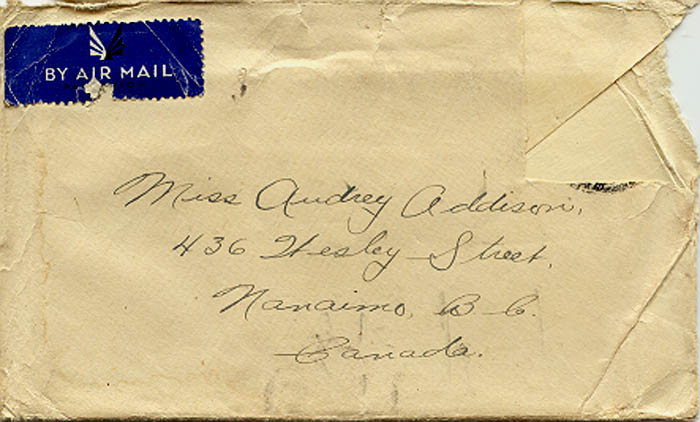 BY AIR MAIL
Miss Audrey Addison,
436 Wesley Street,
Nanaimo, B.C.
Canada.